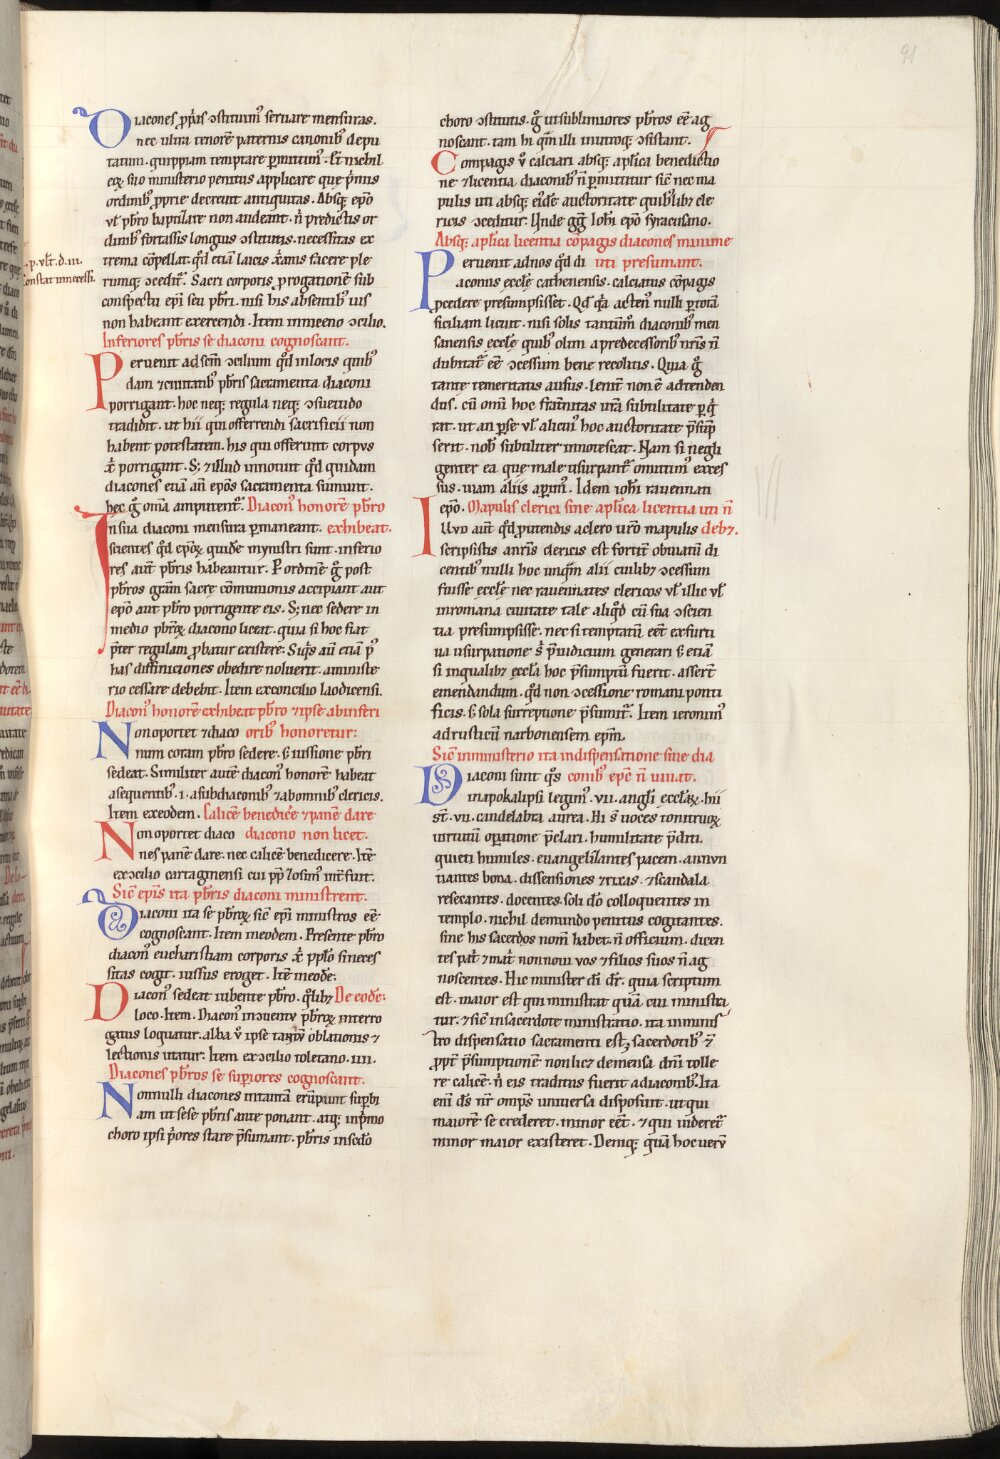 91
Diacones ꝓp̃s ↄstituim᷒ seruare mensuras.
nec ultra tenorẽ paternis canonib᷒ depu
tatum. quippiam temptare ꝑmittim᷒. Et nichil
eoꝝ suo ministerio penitus applicare que p̃mis
ordinib᷒ ꝓprie decreuit antiquitas. Absq; ep̃o
vl̃ p̃bro baptizare non audeant. n̄ predictis or
dinib᷒ fortassis longius ↄstitutis. necessitas ex
trema cõpellat. qd̃ etiã laicis xp̃ianis facere ple
rumq; ↄcedit᷒. Sacri corporis ꝓrogationẽ sub
conspectu ep̃i seu p̃bri. nisi his absentib᷒ ius
non habeant exercendi. Item inniceno ↄcilio.
Inferiores p̃bris se diaconi cognoscant.
Peruenit ad sc̃m ↄcilium qd̃ inlocis quib᷒
dam ⁊ciuitatib᷒ p̃bris sacramenta diaconi
porrigant. hoc neq; regula neq; ↄsuetudo
tradidit. ut hii qui offerendi sacrificii non
habent potestatem. his qui offerunt corpvs
xp̃i porrigant. S; ⁊illud innotuit qd̃ quidam
diacones etiã añ ep̃os sacramenta sumunt.
hec g̊ om̃ia amputent᷒. Diacon᷒ honorẽ p̃bro
Insua diaconi mensura ꝑmaneant. exhibeat.
scientes qd̃ ep̃oꝝ quidẽ mynistri sunt. inferio
res aut̃ p̃bris habeantur. Per ordinẽ g̊ post
p̃bros gr̃am sacrę cõmunionis accipiant aut
ep̃o aut p̃bro porrigente eis. S; nec sedere in
medio p̃broꝝ diacono liceat. quia si hoc fiat
p̃ter regulam ꝓbatur existere: Siq̃s aut̃ etiã p᷒
has diffiniciones obedire noluerit. aministe
rio cessare debebit. Item exconcilio laodicensi.
Diacon᷒ honorẽ exhibeat p̃bro ⁊ipse abinferi
Non oportet ⁊diaco orib᷒ honoretur:
num coram p̃bro sedere. s; iussione p̃bri
sedeat. Similiter autẽ diacon᷒ honorẽ habeat
asequentib᷒. i. asubdiaconib᷒ ⁊abomnib᷒ clericis.
Item exeodem. Calicẽ benedicẽ ⁊panẽ dare
Non oportet diaco diacono non licet.
nes panẽ dare. nec calicẽ benedicere. Itẽ
exↄcilio cartaginensi cui pp̃ Zosim᷒ int̃fuit.
Sic̃ ep̃is ita p̃bris diaconi ministrent.
Diaconi ita se p̃broꝝ sic̃ ep̃i ministros eẽ
cognoscant. Item ineodem. Presente p̃bro
diacon᷒ eucharistiam corporis xp̃i pp̃lo sineces
sitas cogit. iussus eroget. Itẽ ineodẽ:
Diacon᷒ sedeat iubente p̃bro. q̃lib; De eodẽ:
loco. Item. Diacon᷒ inↄuentv p̃broꝝ interro
gatus loquatur. alba v̊ ipse tantv̄ oblationis ⁊
lectionis utatur. Item exↄcilio toletano. iiii.
Diacones p̃bros se suꝑiores cognoscant.
Nonnulli diacones intantã erũpunt suꝑbi
am ut sese p̃bris ante ponant. atq; inp̃mo
choro ipsi p̃ores stare p̃sumant. p̃bris insedo
choro ↄstitutis. g̊ utsublimiores p̃bros eẽ ag
noscant. tam hi q̃m illi inutroq; ↄsistant.
Compagis v̊ calciari absq; ap̃lica benedictio
ne ⁊licentia diaconib᷒ ñ ꝑmittitur sic̃ nec ma
pulis uti absq; eidẽ auctoritate quib᷒lib; cle
ricis ↄceditur. Unde g̃g̃ Ioh̃i ep̃o syracusano.
Absq; ap̃lica licentia cõpagis diacones minime
Peruenit adnos qd̃ di uti presumant.
aconus eccłę cathenensis. calciatus cõpagis
ꝓcedere presumpsisset. Qd̃ q̃a acten᷒ nulli ꝑ totã
siciliam licuit. nisi solis tantum᷒ diaconib᷒ mes
sanensis eccłę quib᷒ olim a predecessorib᷒ nr̃is ñ
dubitat᷒ eẽ ↄcessum bene recolitis. Quia g̊
tante temeritatis ausus. lenit᷒ non ẽ adtenden
dus. cũ om̃i hoc frat̃nitas ur̃a subtilitate ꝑq̃
rat. ut an ꝑse vl̃ alicui᷒ hoc auctoritate p̃sup̃
serit. nob᷒ subtiliter innotescat. Nam si negli
genter ea que male usurpant᷒ omittim᷒ exces
sus. uiam aliis aꝑim᷒. Idem ioh̃i rauennati
ep̃o. Mapulis clerici sine ap̃lica licentia uti ñ
Illvd aut̃ qd̃ ꝓutendis aclero ur̃o mapulis deb;.
scripsistis anr̃is clericis est fortit̃ obuiatũ di
centib᷒ nulli hoc unq̃m alii cuilib; ↄcessum
fuisse eccłę nec rauennates clericos vl̃ illic vl̃
inromana ciuitate tale aliq̃d cũ sua ↄscien
tia presumpsisse. nec si temptatũ eẽt exfurti
ua usurpatione s̃ p̃iudicium generari s; etiã
si inqualib; eccła hoc p̃sumptũ fuerit. asserit
emendandum. qd̃ non ↄcessione romani ponti
ficis. s; sola surreptione p̃sumit᷒. Item ieronim᷒
ad rusticũ narbonensem ep̃m.
Sic̃ inministerio ita indispensatione sine dia
Diaconi sunt q̃s conib᷒ ep̃c ñ uiuat.
inapokalipsi legim᷒. vii. angłi eccłaꝝ. hii
st̃. vii. candelabra aurea. Hi s̃ uoces tonitruoꝝ
uirtutũ oꝑatione p̃clari. humilitate p̃diti.
quieti humiles. euangelizantes pacem. annvn
tiantes bona. dissensiones ⁊rixas. ⁊scandala
resecantes. docentes. soli dõ colloquentes in
templo. nichil demundo penitus cogitantes.
sine his sacerdos nom̃ habet. ñ officium. dicen
tes pat̃ ⁊mat̃ nonnoui vos ⁊filios suos ñ ag
noscentes. Hic minister dñi dr̃. quia scriptum
est. maior est qui ministrat quã cui ministra
tur. ⁊sic̃ insacerdote ministratio. ita inminis
tro dispensatio sacramenti est; sacerdotib᷒ ⁊̃
ꝓpt̃ p̃sumptionẽ nonlic; demensa dñi tolle
re calicẽ. ñ eis traditus fuerit adiaconib᷒. Ita
eni᷒ ds̃ nr̃ omp̃s uniuersa disposuit. utqui
maiorẽ se crederet. minor eẽt. ⁊qui uideret᷒
minor maior existeret. Deniq; quã hoc uerv̄
.p. vłt. d. iii.
Constat innecessi.